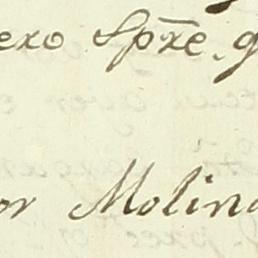 ero Spre. g
or Molina